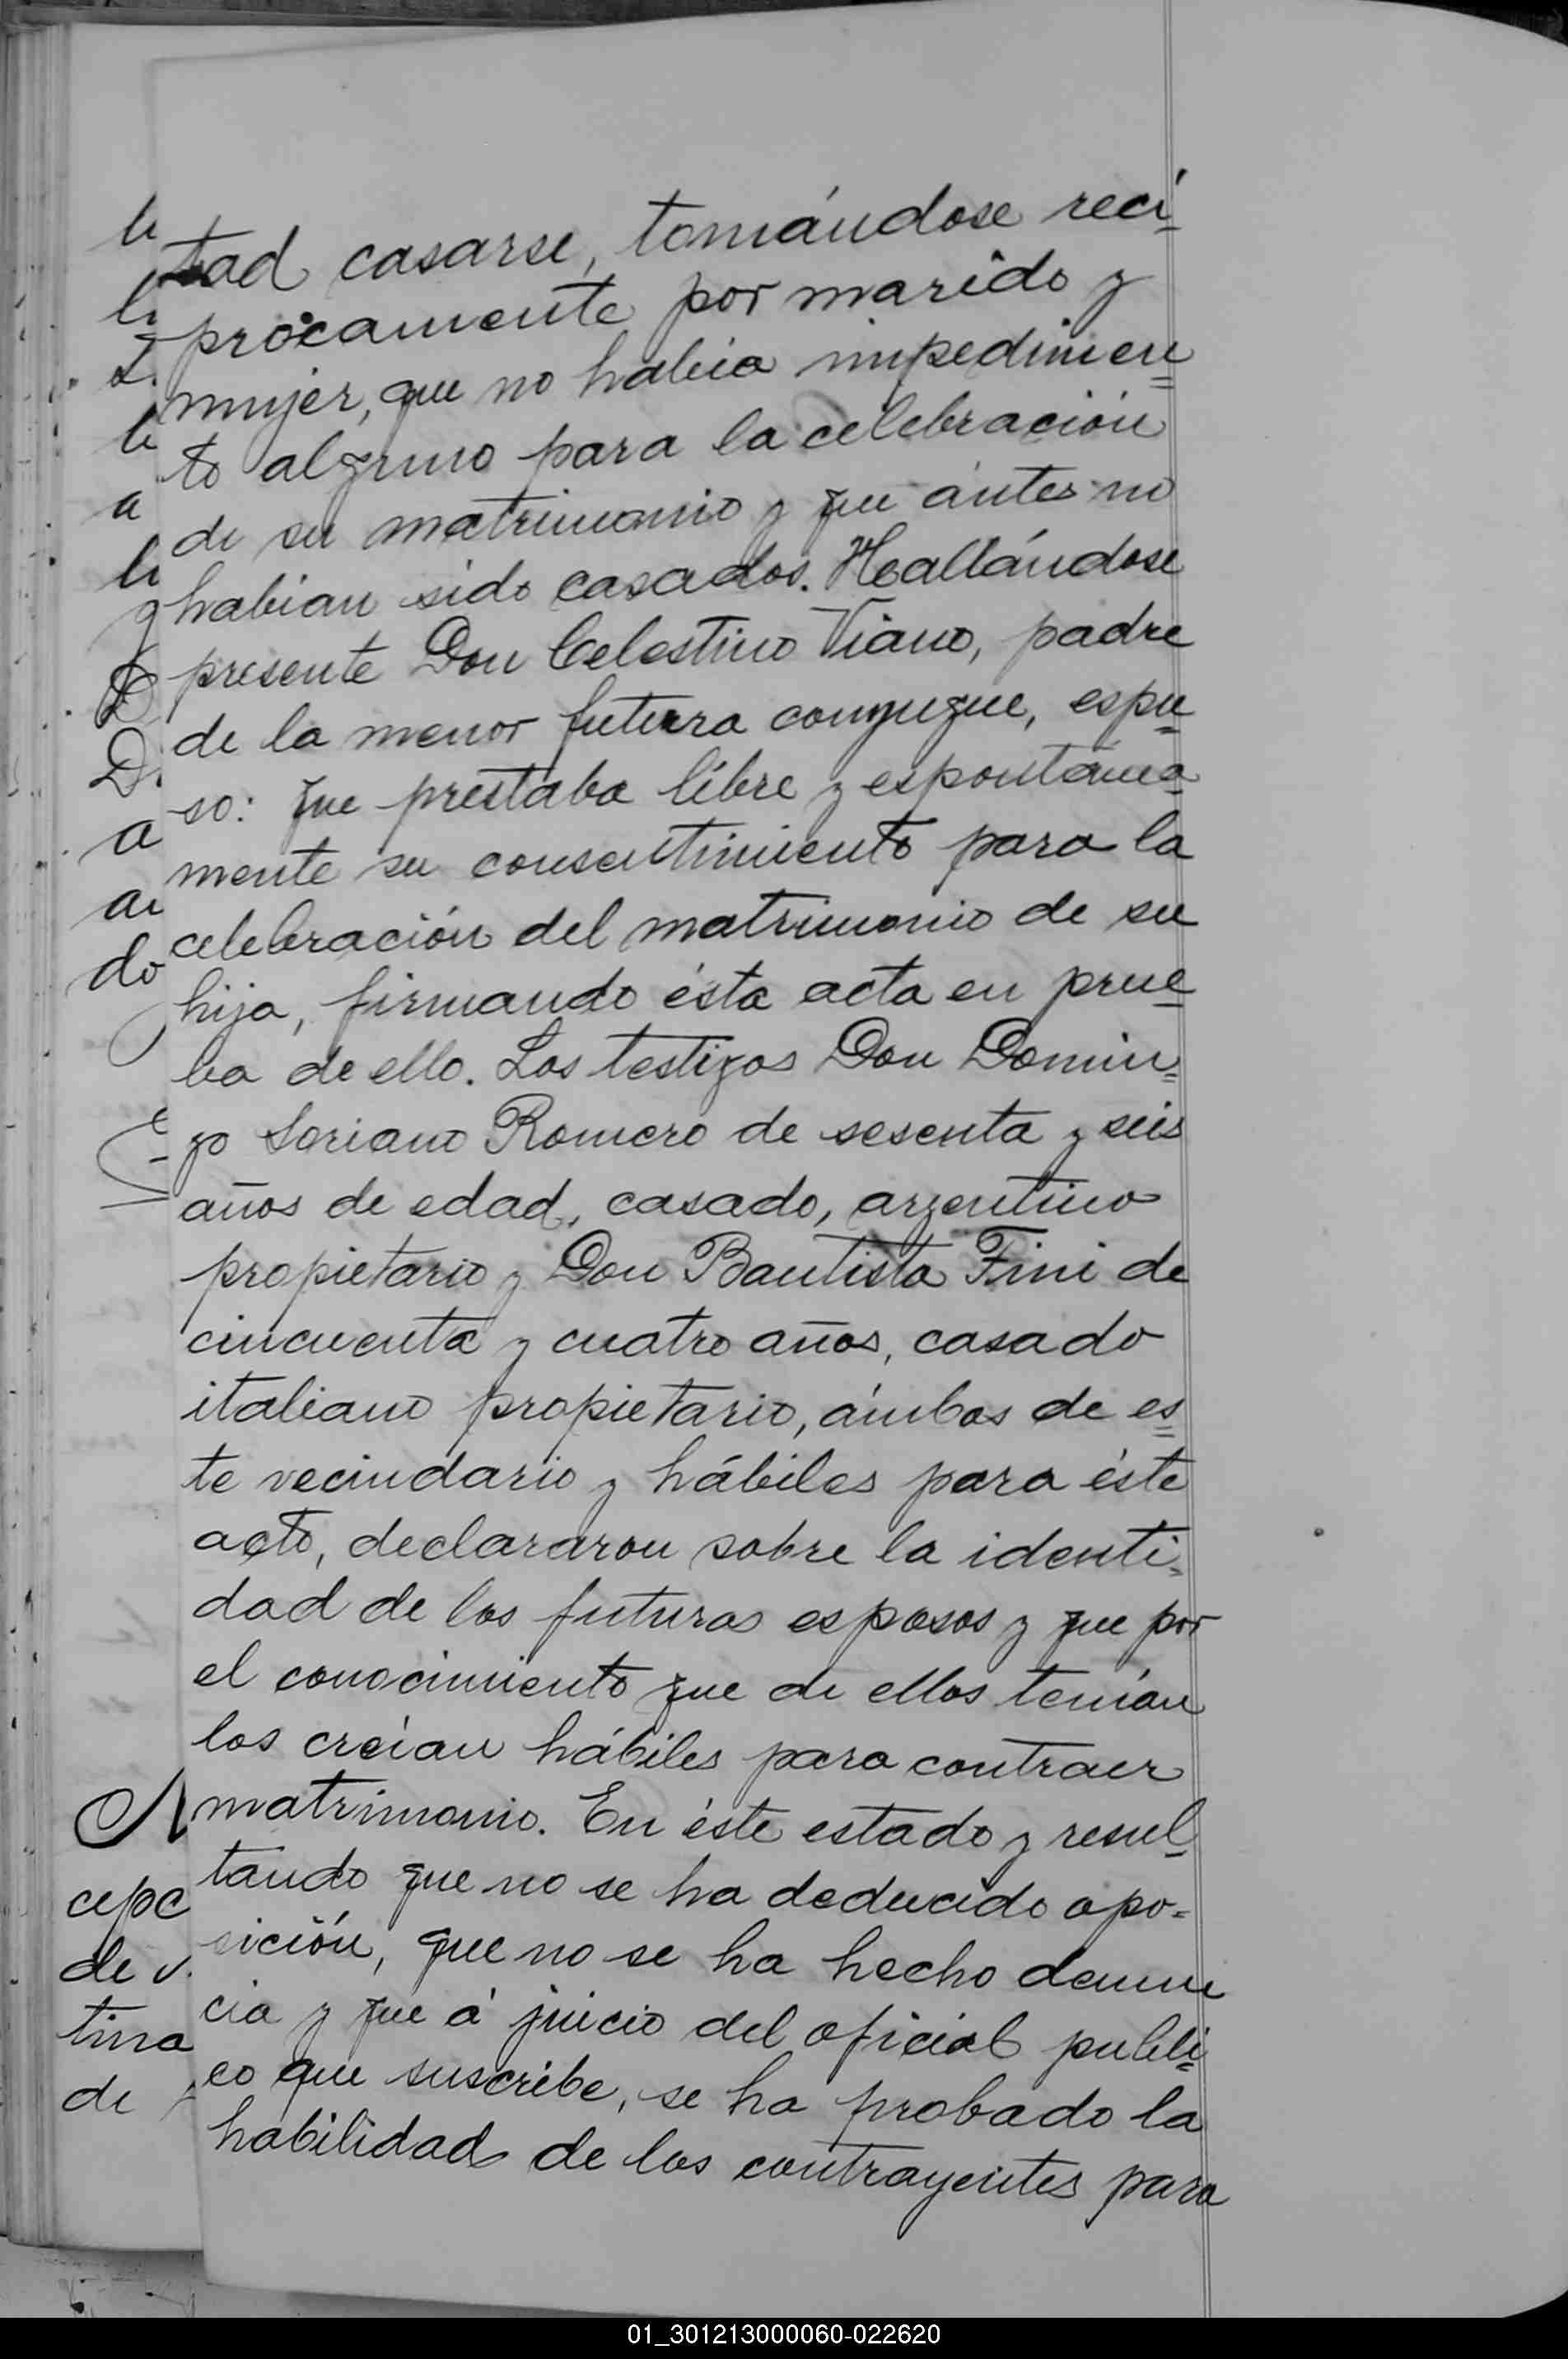 tad casarse, tomándose recí-
procamente por marido y
mujer, que no habia impedimen=
to alguno para la celebración
de su matrimonio y que ántes no
habian sido casados. Hallándose
presente Don Celestino Viano, padre
de la menor futura conyugue, espu=
so: que prestaba libre y espontánea-
mente su consentimiento para la
celebración del matrimonio de su
hija, firmando ésta acta en prue-
ba de ello. Los testigos Don Domin=
go Soriano Romero de sesenta y seis
años de edad, casado, argentino
propietario y Don Bautista Fini de
cincuenta y cuatro años, casado
italiano propietario, ámbos de es=
te vecindario y hábiles para éste
acto, declararon sobre la identi=
dad de los futuros esposos y que por
el conocimiento que de ellos tenían
los creían hábiles para contraer
matrimonio. En éste estado y resul-
tando que no se ha deducido opo=
sición, que no se ha hecho denun
cia y que á juicio del oficial públi=
co que suscribe, se ha probado la
habilidad de los contrayentes para
01_301213000060-022620